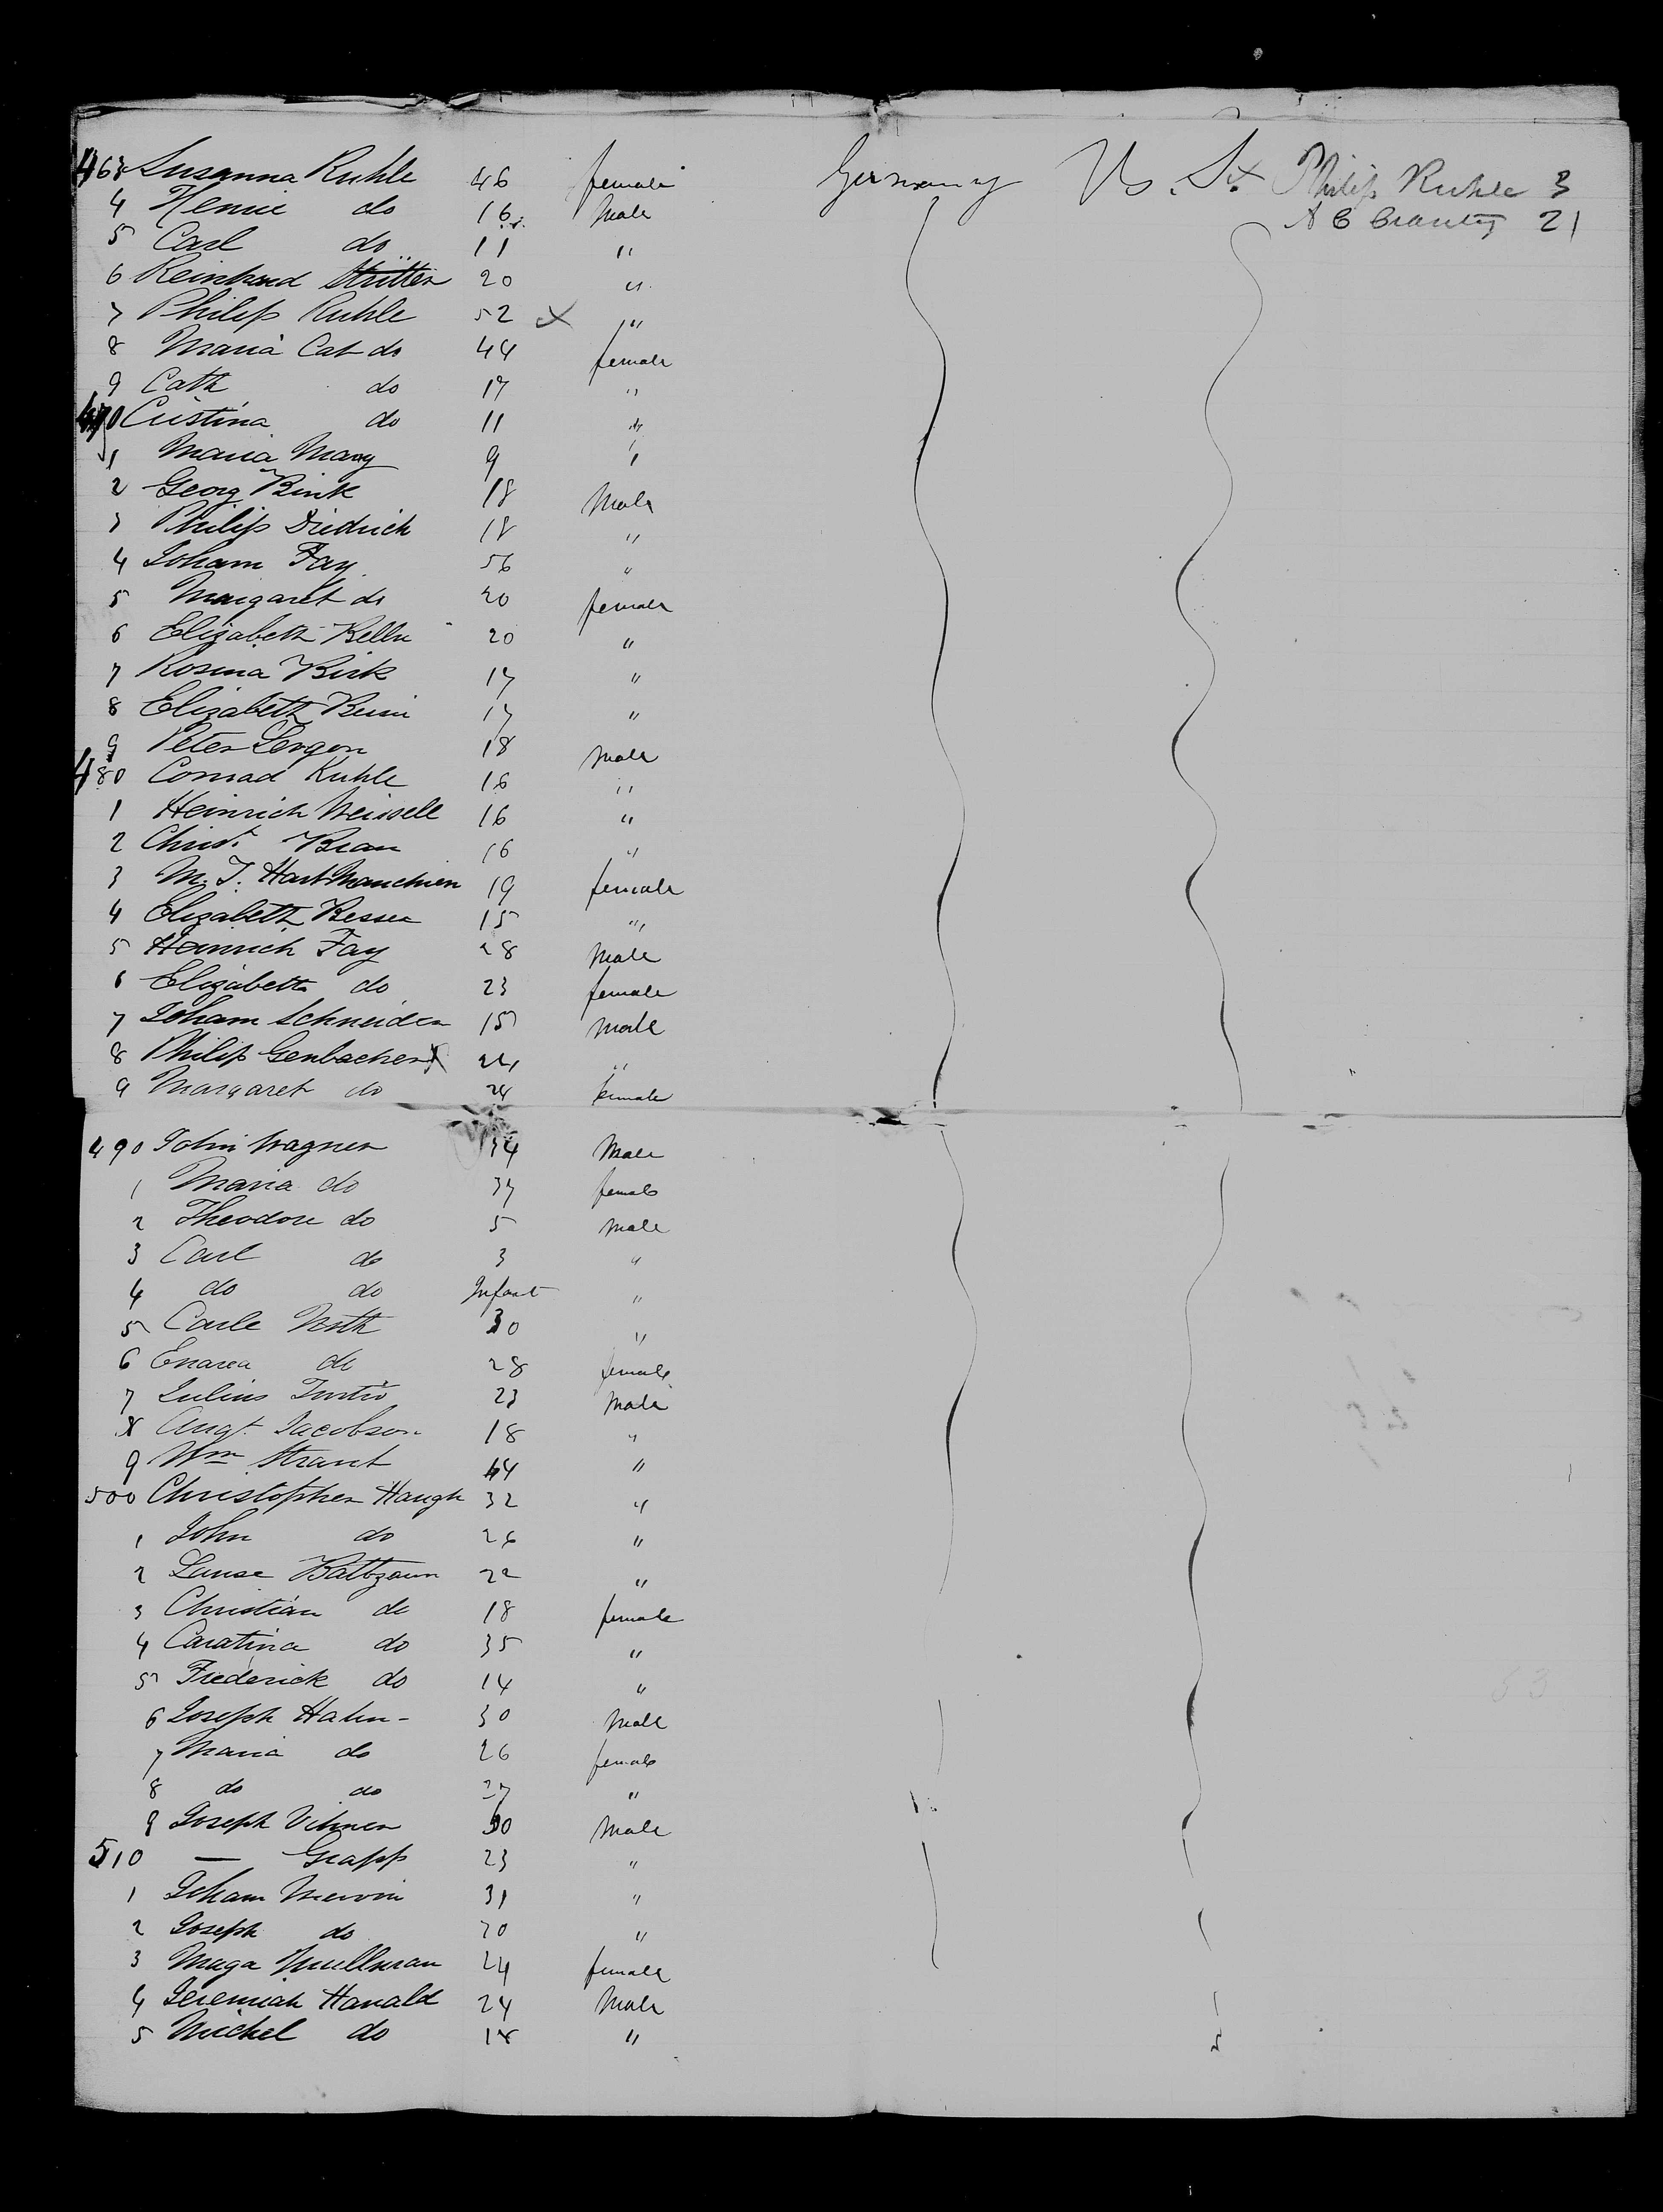 463 Susanna Ruhle 46 female Germany U. St. Philip Ruhle 3
4 Henrie do 16 Male A C Crantz 21
5 Carl do 11 "
6 Reinhard Stritter 20 "
7 Philip Ruhle 52 x "
8 Maria Cat do 44 female
9 Cath do 17 "
470 Cristina do 11 "
1 Maria Mary 9 "
2 Georg Bink 18 Male
3 Philip Diedrich 18 "
4 Joham Fay 56 "
5 Margaret do 20 female
6 Elizabeth Kelln 20 "
7 Rosina Birk 17 "
8 Elizabeth 17 "
9 Peter Lergon 18 Male
480 Conrad Kuhle 16 "
1 Heinrich Weissell 16 "
2 Christ. Braun 16 "
3 M. J. Hartmanchien 19 female
4 Elizabeth Besser 15 "
5 Heinrich Fay 28 Male
6 Elizabeth do 23 female
7 Joham Schneider 15 Male
8 Philip Genbacher 24 "
9 Margaret do 24 female
490 John Wagner 34 Male
1 Maria do 37 female
2 Theodore do 5 Male
3 Carl do 3 "
4 do do Infant "
5 Carle Noth 30 "
6 do 28 female
7 Julius 23 Male
8 Augt. Jacobson 18 "
9 Wm Strant 44 "
500 Christopher Haugh 32 "
1 John do 26 "
2 Lause Baltzaum 22 "
3 Christian do 18 female
4 Caratina do 35 "
5 Frederick do 14 "
6 Joseph Hahn - 30 Male
7 Maria do 26 female
8 do do 27 "
9 Joseph Vilmer 30 Male
510 — Grapp 23 "
1 Joham 31 "
2 Joseph do 20 "
3 Maga Mullman 24 female
4 Jeremiah Harald 24 Male
5 Michel do 18 "